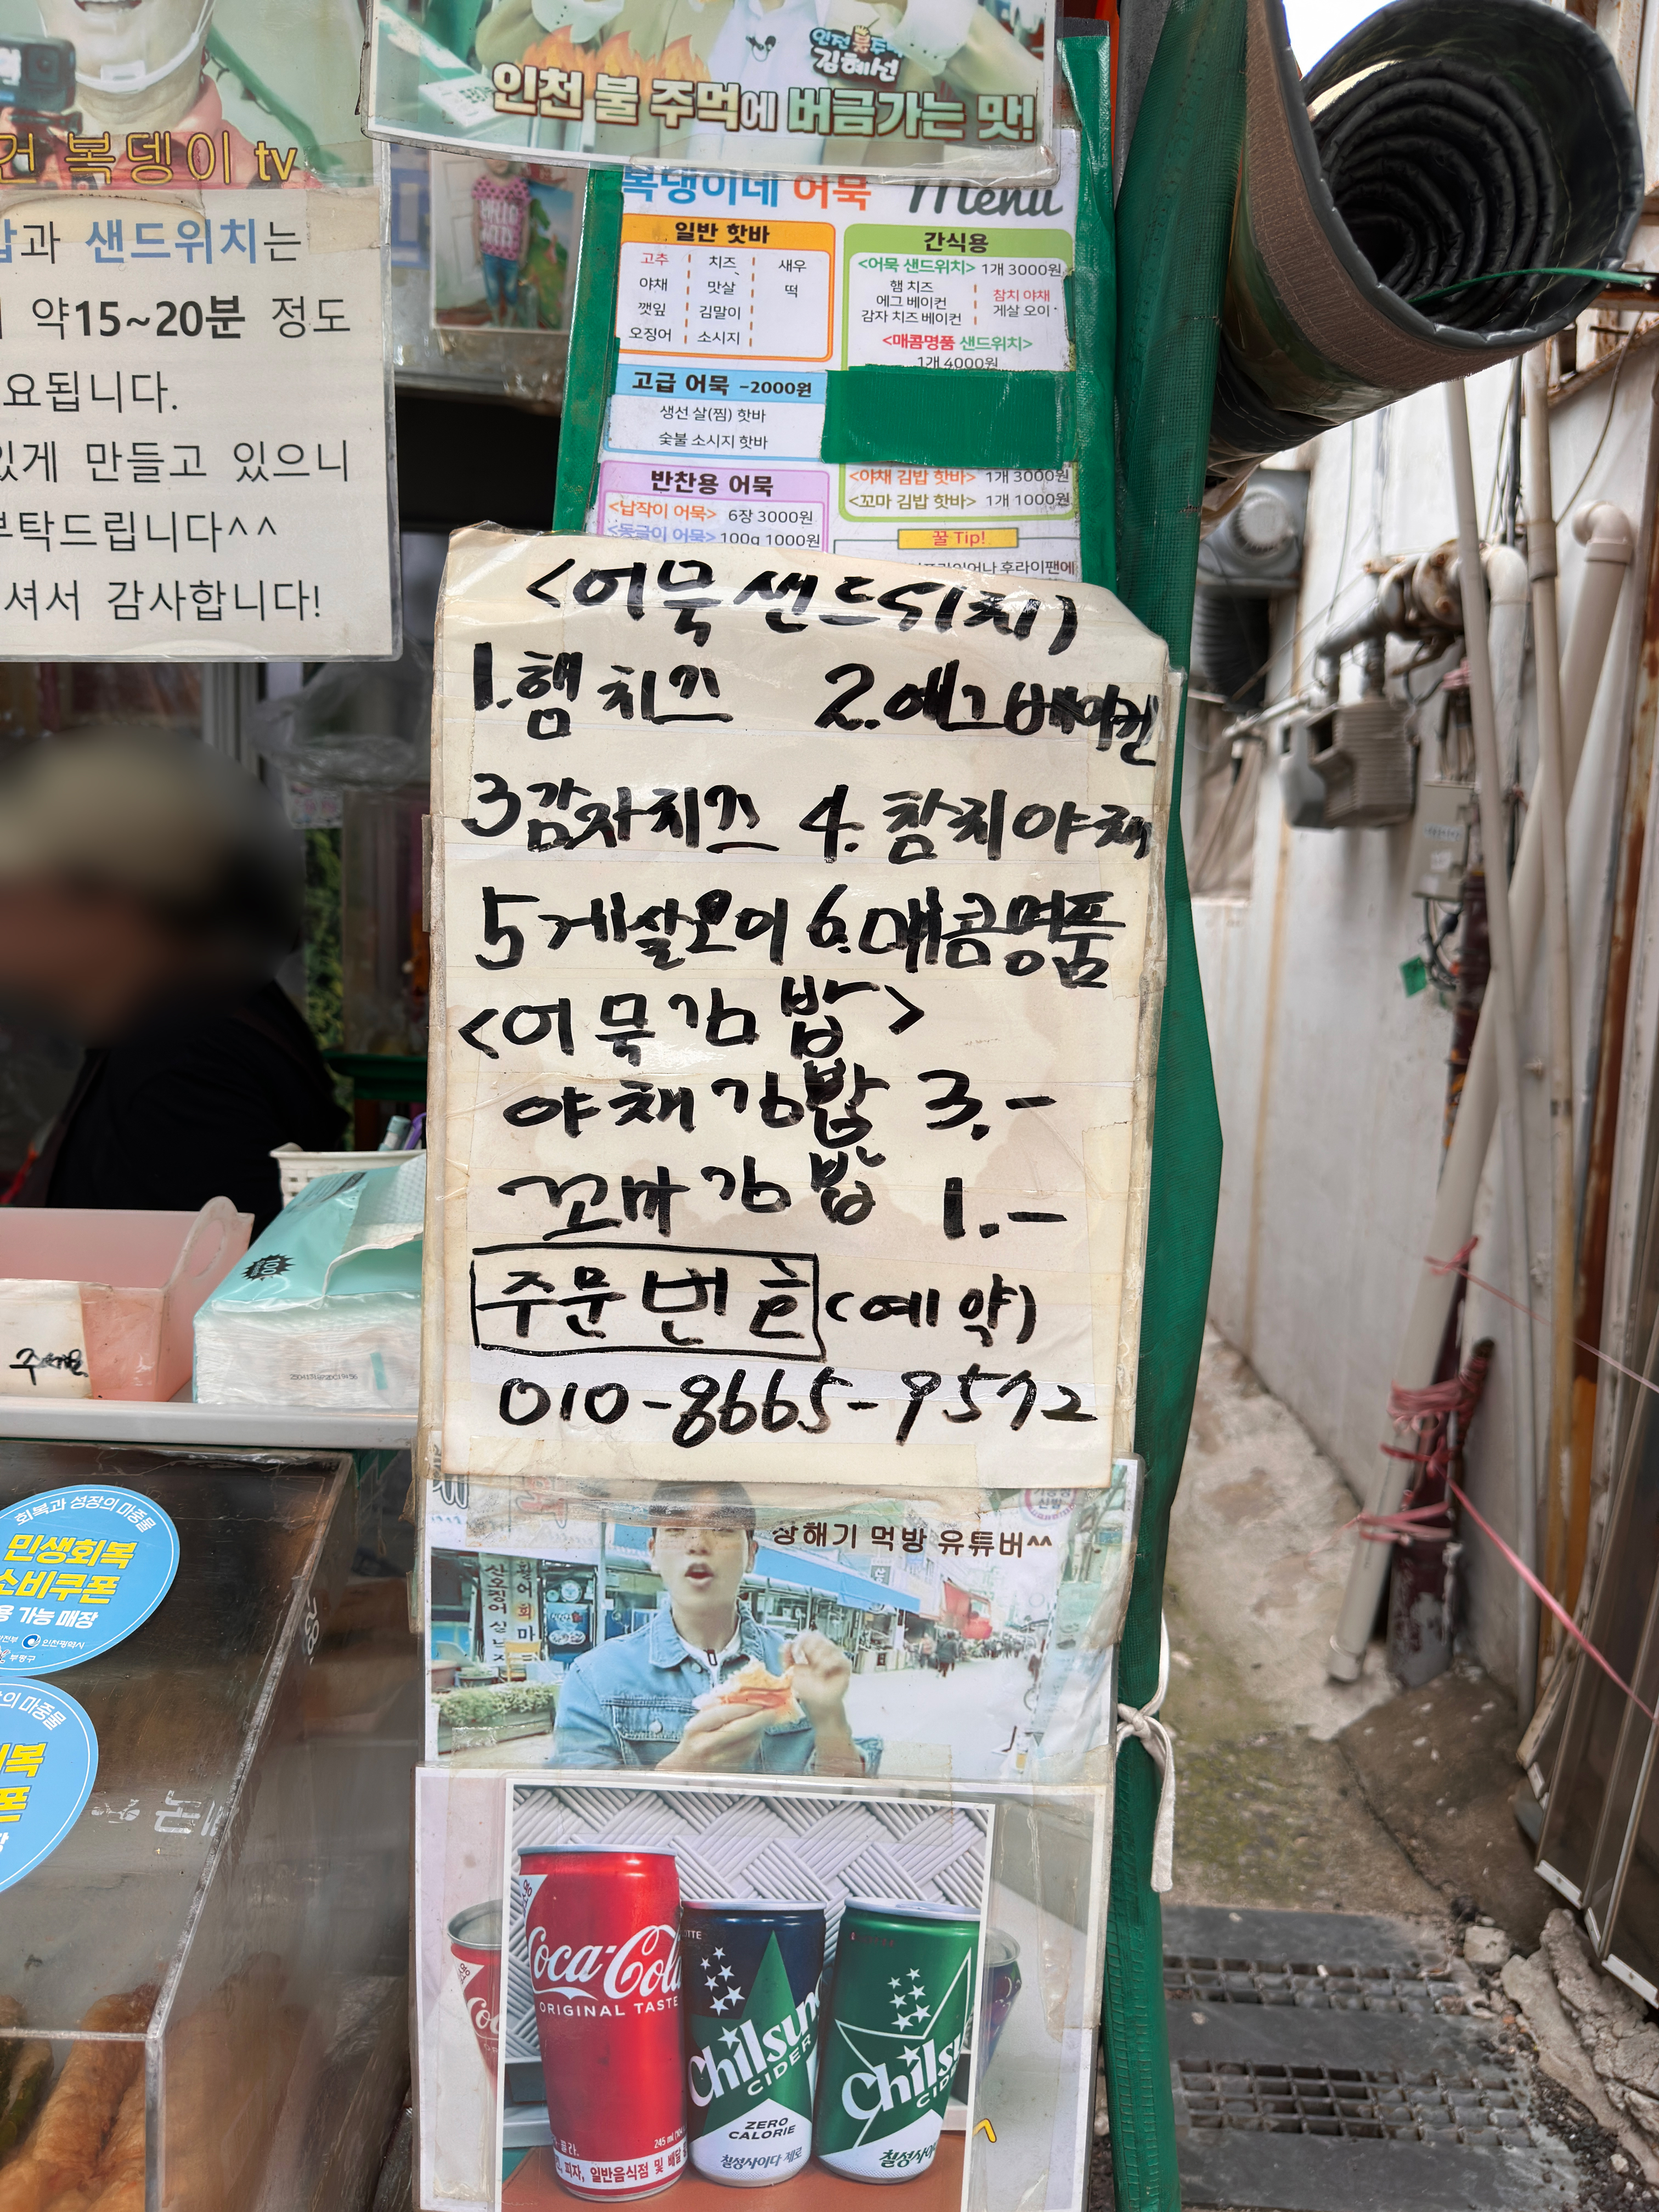 인천 불주먹
김혜선
인천 불 주먹에 버금가는 맛!
건 복뎅이 tv
과 샌드위치는
약15~20분 정도
요됩니다.
있게 만들고 있으니
부탁드립니다^^
셔서 감사합니다!
복댕이네 어묵 Menu
일반 핫바
고추 치즈 새우
야채 맛살 떡
깻잎 김말이
오징어 소시지
고급 어묵 -2000원
생선 살(찜) 핫바
숯불 소시지 핫바
반찬용 어묵
<납작이 어묵> 6장 3000원
<동글이 어묵> 100g 1000원
간식용
<어묵 샌드위치> 1개 3000원
햄 치즈 참치 야채
에그 베이컨 게살 오이
감자 치즈 베이컨
<매콤명품 샌드위치>
1개 4000원
<야채 김밥 핫바> 1개 3000원
<꼬마 김밥 핫바> 1개 1000원
꿀 Tip!
후라이팬에
<어묵 샌드위치>
1.햄 치즈 2.에그베이컨
3감자치즈 4.참치야채
5게살오이 6.매콤명품
<어묵김밥>
야채김밥 3.-
꼬마김밥 1.-
주문번호(예약)
010-8665-9572
상해기 먹방 유튜버^^
회복과 성장의 마중물
민생회복
소비쿠폰
용 가능 매장
인천광역시
부평구
의 마중물
회복
폰
Coca-Cola
ORIGINAL TASTE
Chilsung
CIDER
ZERO
CALORIE
칠성사이다 제로
Chilsu
CID
칠성사이
피자, 일반음식점 및 배달